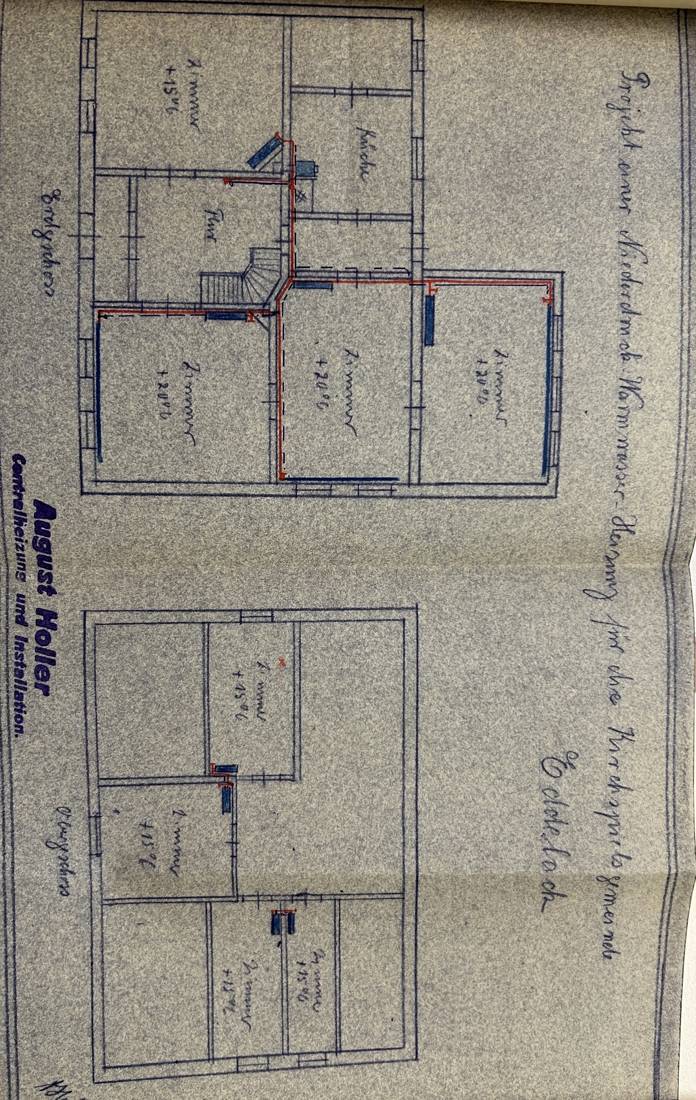 Projekt einer Niederdruck-Warmwasser-Heizung für die Kirchspielsgemeinde
Eddelack
Zimmer
+15°C
Küche
Flur
Zimmer
+20°C
Zimmer
+20°C
Zimmer
+20°C
Erdgeschoss
Zimmer
+15°C
Zimmer
+15°C
Zimmer
+15°C
Zimmer
+15°C
Obergeschoss
August Holler
Centralheizung und Installation.